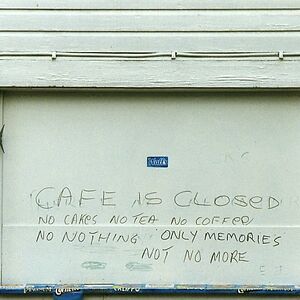 Wall's
CAFE IS CLOSED
NO CAKES NO TEA NO COFFEE
NO NOTHING ONLY MEMORIES
NOT NO MORE